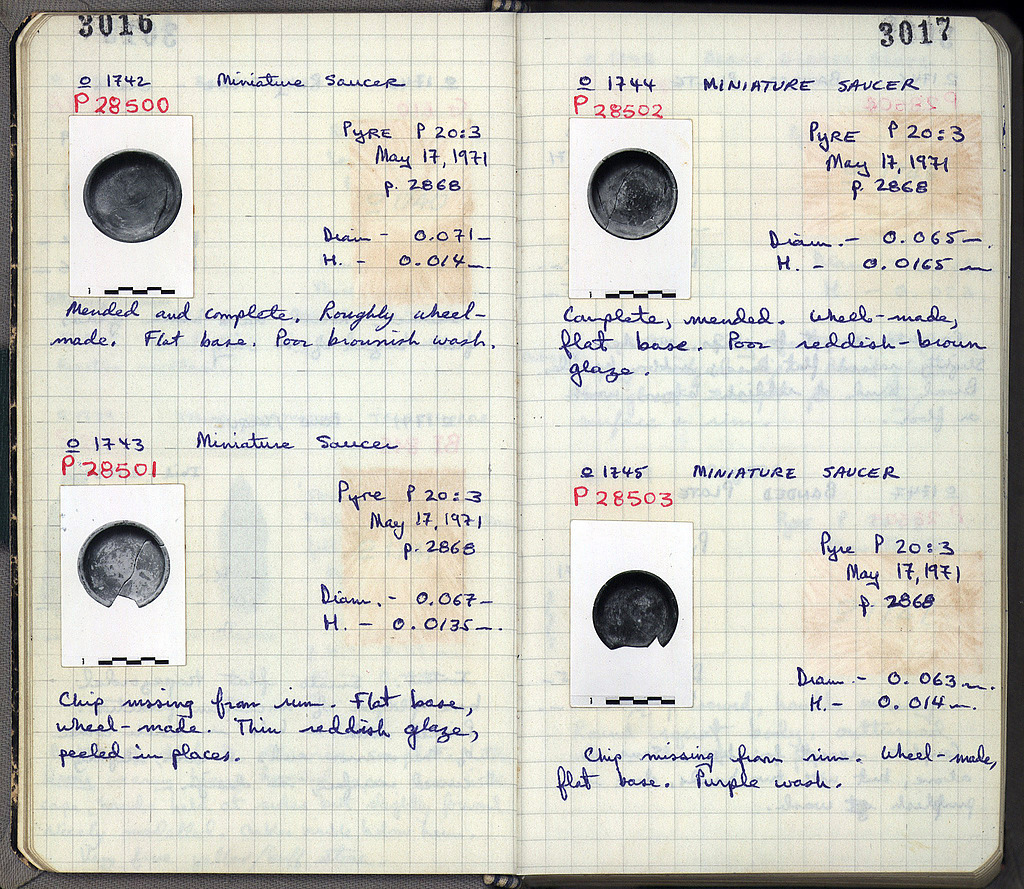 3016
o 1742 Miniature Saucer
P 28500
Pyre P 20:3
May 17, 1971
p. 2868
Diam - 0.071 m
H. - 0.014 m.
1
Mended and complete. Roughly wheel-
made. Flat base. Poor brownish wash.
o 1743 Miniature Saucer
P 28501
Pyre P 20:3
May 17, 1971
p. 2868
Diam. - 0.067 m
H. - 0.0135 m.
1
Chip missing from rim. Flat base,
wheel-made. Thin reddish glaze,
peeled in places.
3017
o 1744 MINIATURE SAUCER
P 28502
PYRE P 20:3
May 17, 1971
p. 2868
Diam. - 0.065 m.
H. - 0.0165 m
1
Complete, mended. Wheel-made,
flat base. Poor reddish-brown
glaze.
o 1745 MINIATURE SAUCER
P 28503
Pyre P 20:3
May 17, 1971
p. 2868
Diam - 0.063 m.
H. - 0.014 m.
1
Chip missing from rim. Wheel-made,
flat base. Purple wash.